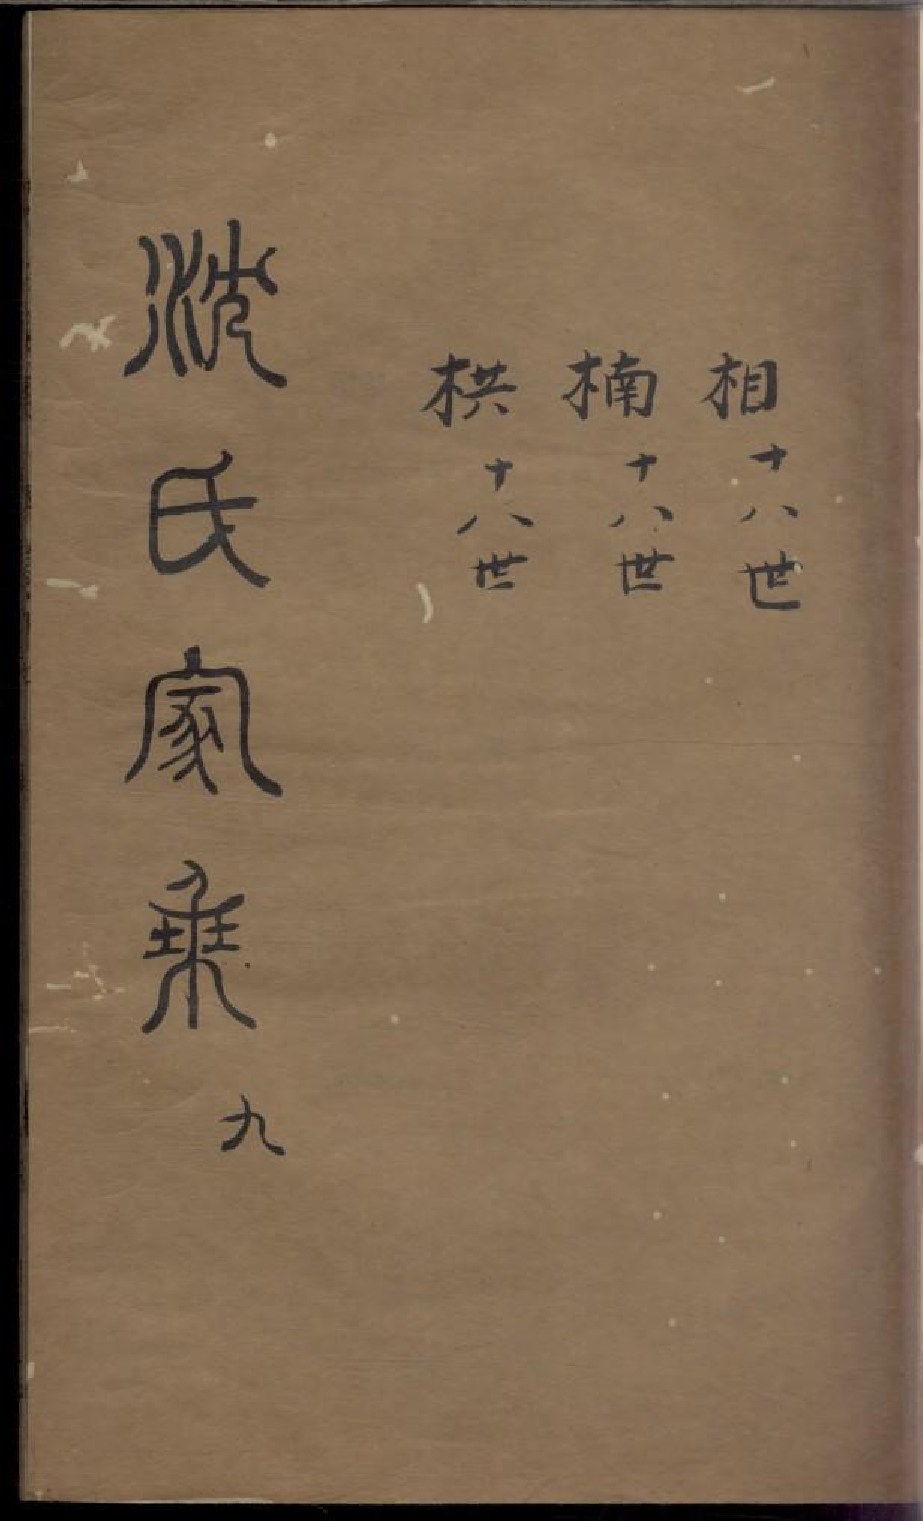 相十八世
楠十八世
栱十八世
沈氏家乗九